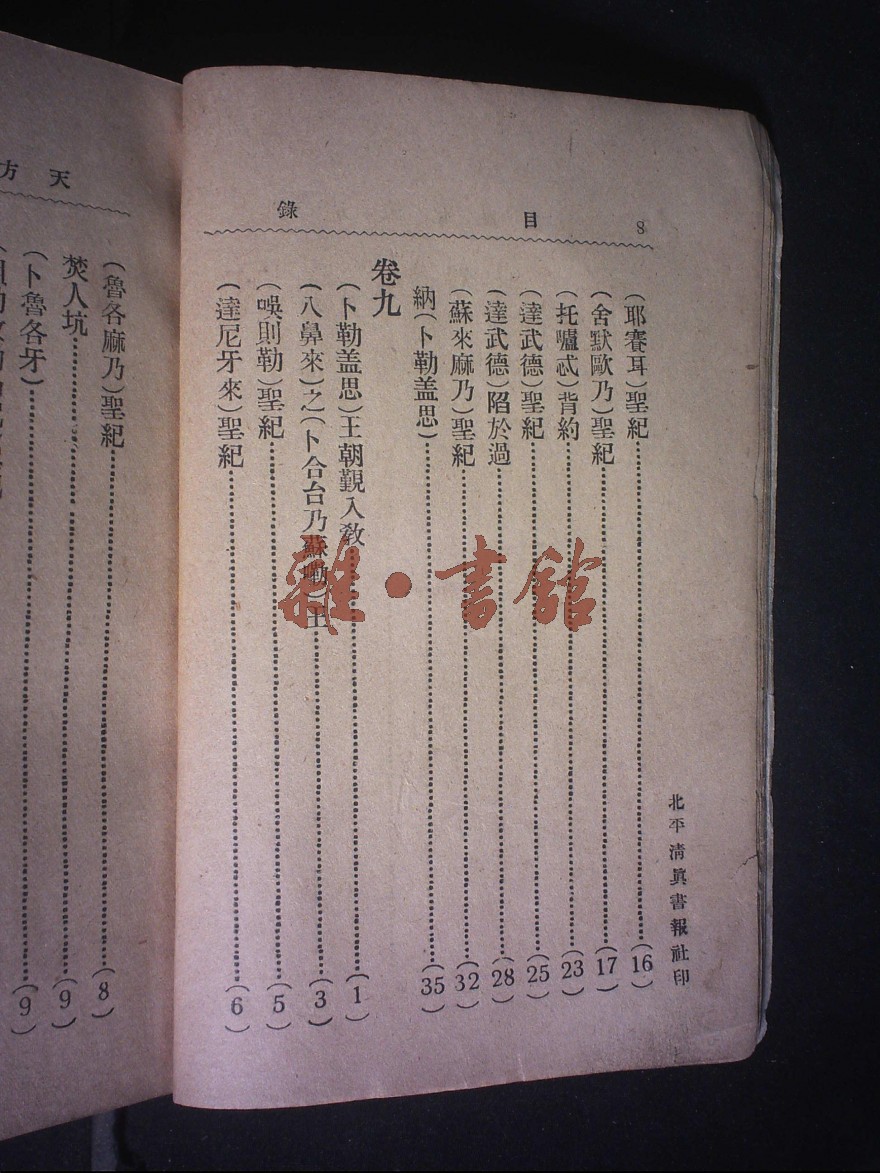 8 目錄
(耶賽耳)聖紀……(16)
(舍默歐乃)聖紀……(17)
(托嚧忒)背約……(23)
(達武德)聖紀……(25)
(達武德)陷於過……(28)
(蘇來麻乃)聖紀……(32)
納(卜勒盖思)……(35)
卷九
(卜勒盖思)王朝覲入教……(1)
(八鼻來)之(卜合台乃蘇嘞)王……(3)
(㖵則勒)聖紀……(5)
(達尼牙來)聖紀……(6)
北平清眞書報社印
雜·書館
天方
(魯各麻乃)聖紀……(8)
焚人坑……(9)
(卜魯各牙)……(9)